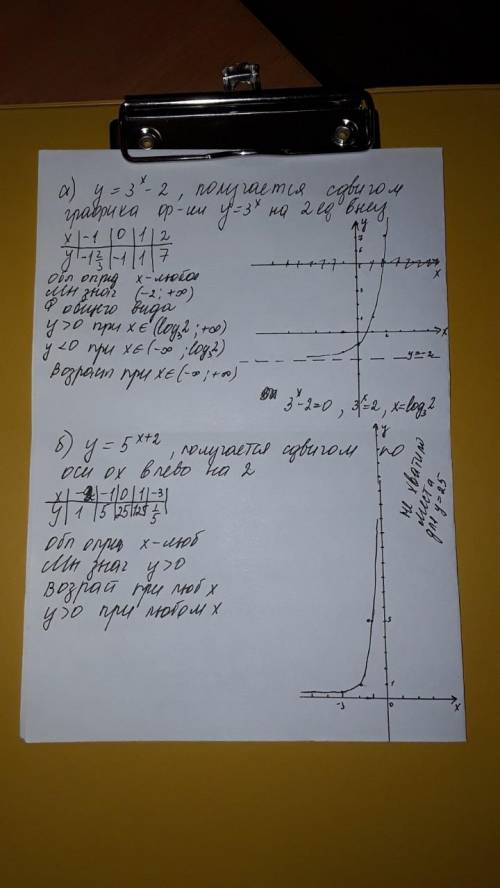 а) y = 3^x - 2 , получается сдвигом
графика ф-ии y = 3^x на 2 ед вниз
x | -1 | 0 | 1 | 2
y | -1 2/3 | -1 | 1 | 7
обл опред x - любое
Мн знач (-2; +∞)
Ф общего вида
y > 0 при x ∈ (log₃2; +∞)
y < 0 при x ∈ (-∞; log₃2)
Возраст при x ∈ (-∞; +∞)
y
7
x
x
y = -2
3^x - 2 = 0 , 3^x = 2, x = log₃2
б) y = 5^(x+2) , получается сдвигом по
оси ox влево на 2
x | -2 | -1 | 0 | 1 | -3
y | 1 | 5 | 25 | 125 | 1/5
обл опред x - люб
Мн знач y > 0
Возраст при люб x
y > 0 при любом x
y
не хватило
места
для y = 25
5
1
-3
0
x